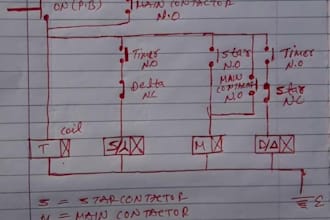 ON (P.B)
MAIN CONTACTOR
N.O
Timer
N.O
Delta
NC
Star
N.O
MAIN
CONTACT
N.O
Timer
N.O
Star
NC
coil
T
S/λ
M
D/Δ
E
S = STAR CONTACTOR
M = MAIN CONTACTOR